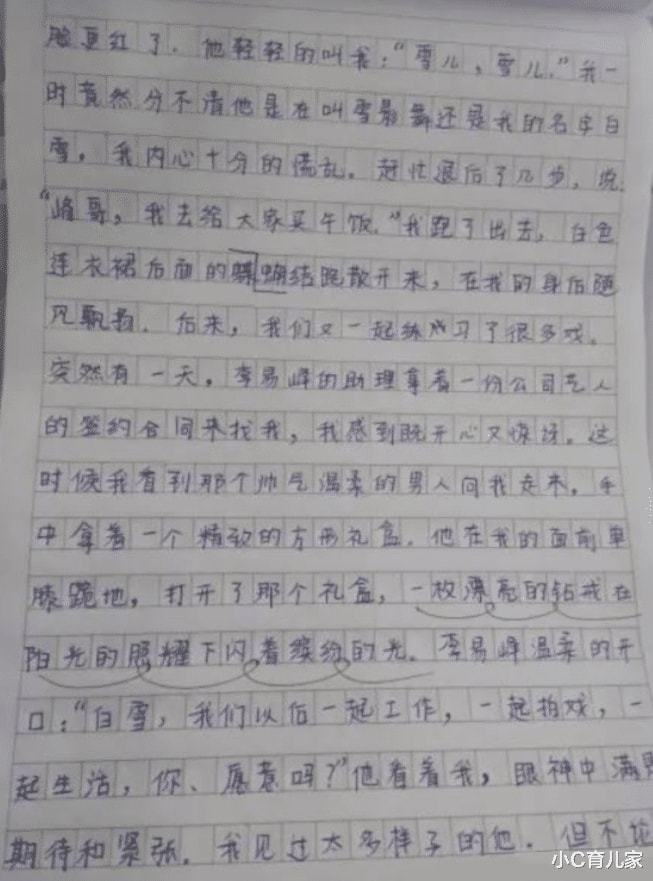 脸更红了。他轻轻的叫我：“雪儿，雪儿。”我一
时竟然分不清他是在叫雪影舞还是我的名字白
雪，我内心十分的慌乱。赶忙退后了几步，说：
“峰哥，我去给大家买午饭。”我跑了出去，白色
连衣裙后面的蝴蝶结跑散开来，在我的身后随
风飘扬。后来，我们又一起练习了很多戏。
突然有一天，李易峰的助理拿着一份公司艺人
的签约合同来找我，我感到既开心又惊讶。这
时候我看到那个帅气温柔的男人向我走来，手
中拿着一个精致的方形礼盒。他在我的面前单
膝跪地，打开了那个礼盒，一枚漂亮的钻戒在
阳光的照耀下闪着缤纷的光。李易峰温柔的开
口：“白雪，我们以后一起工作，一起拍戏，一
起生活，你、愿意吗？”他看着我，眼神中满是
期待和紧张。我见过太多样子的他，但不论
小C育儿家